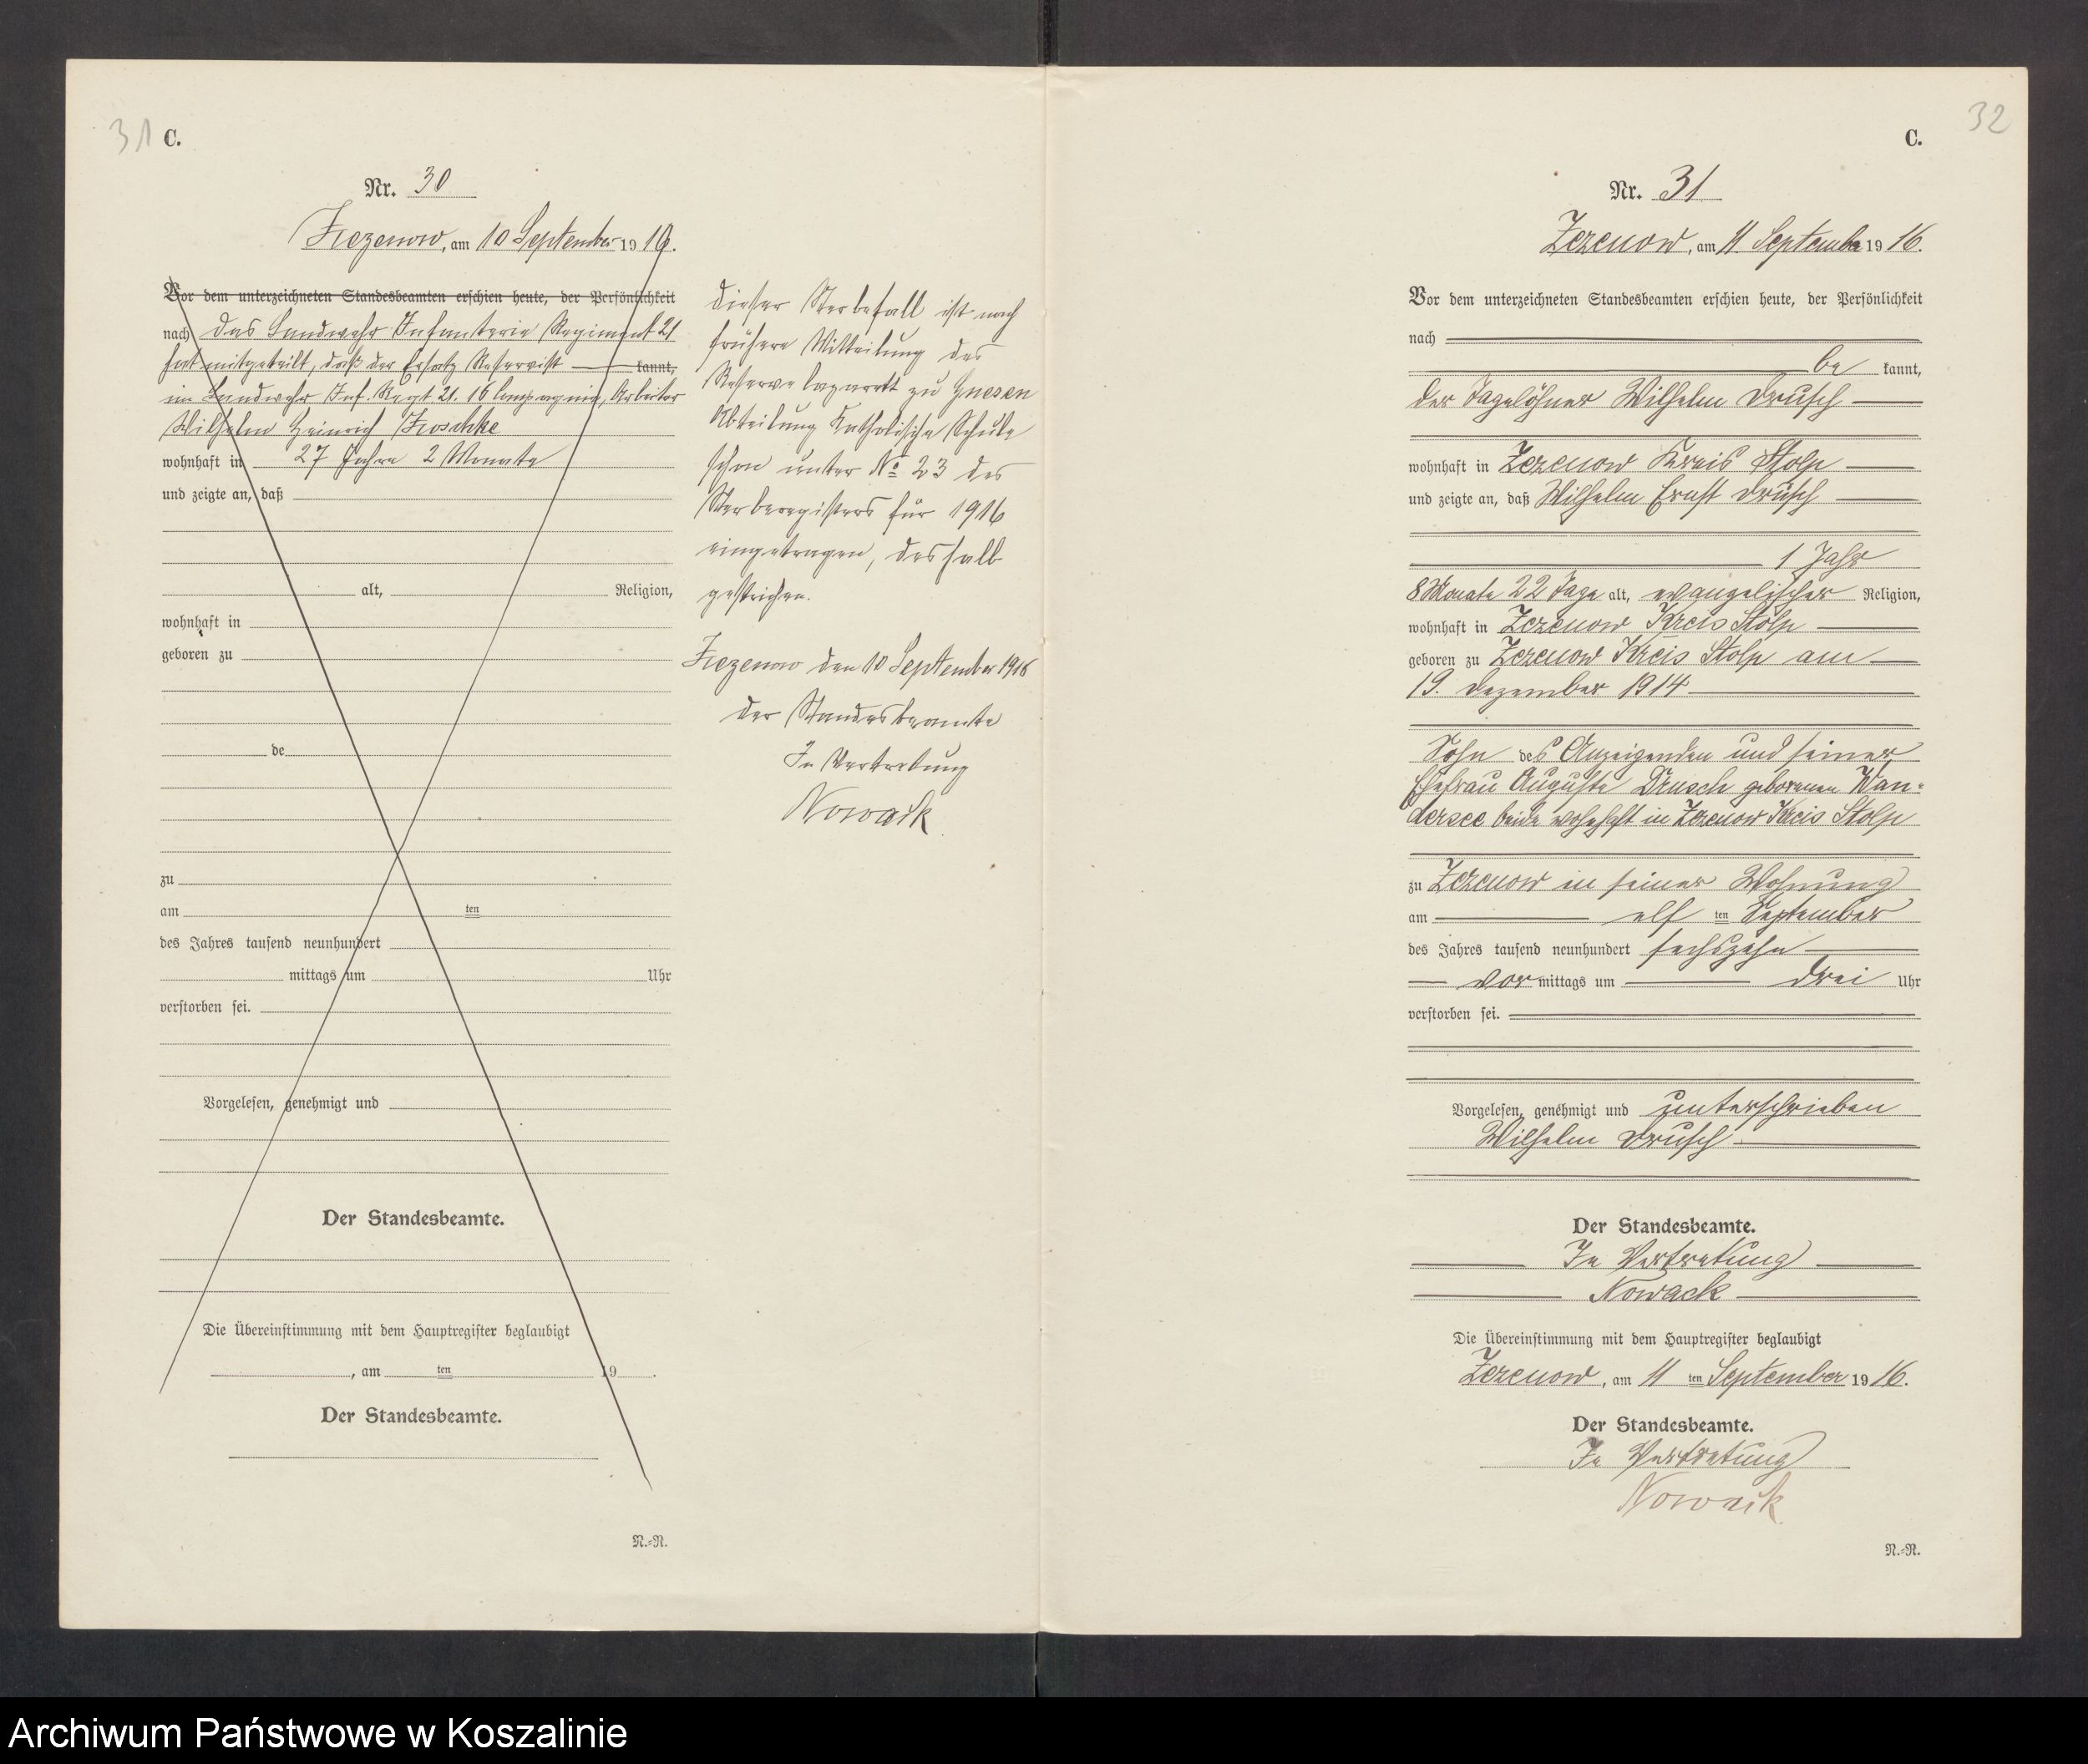 31 C.
Nr. 30
Zezenow, am 10 September 1916.
Vor dem unterzeichneten Standesbeamten erschien heute, der Persönlichkeit
nach das Landwehr Infanterie Regiment 21
hat mitgeteilt, daß der Ersatz Reservist kannt,
im Landwehr Inf. Regt 21. 16 Compagnie, Arbeiter
Wilhelm Heinrich
wohnhaft in 27 Jahre 2 Monate
und zeigte an, daß
alt, Religion,
wohnhaft in
geboren zu
de
zu
am ten
des Jahres tausend neunhundert
mittags um Uhr
verstorben sei.
Vorgelesen, genehmigt und
Der Standesbeamte.
Die Übereinstimmung mit dem Hauptregister beglaubigt
, am ten 19 .
Der Standesbeamte.
N.=R.
Dieser Sterbefall ist nach
frühere Mitteilung des
Reserve lazarett zu Gnesen
Abteilung Katholische Schule
schon unter No 23 des
Sterberegisters für 1916
eingetragen, deshalb
gestrichen.
Zezenow den 10 September 1916
Der Standesbeamte
In Vertretung
Nowack
32
C.
Nr. 31
Zezenow, am 11 September 1916.
Vor dem unterzeichneten Standesbeamten erschien heute, der Persönlichkeit
nach
be kannt,
der Tagelöhner Wilhelm Drusch
wohnhaft in Zezenow Kreis Stolp
und zeigte an, daß Wilhelm Ernst Drusch
1 Jahr
8 Monate 22 Tage alt, evangelischer Religion,
wohnhaft in Zezenow Kreis Stolp
geboren zu Zezenow Kreis Stolp am
19. Dezember 1914
Sohn des Anzeigenden und seiner
Ehefrau Auguste Drusch geborenen Wan=
dersee beide wohnhaft in Zezenow Kreis Stolp
zu Zezenow in seiner Wohnung
am elf ten September
des Jahres tausend neunhundert sechszehn
vor mittags um drei Uhr
verstorben sei.
Vorgelesen, genehmigt und unterschrieben
Wilhelm Drusch
Der Standesbeamte.
In Vertretung
Nowack
Die Übereinstimmung mit dem Hauptregister beglaubigt
Zezenow, am 11 ten September 1916.
Der Standesbeamte.
In Vertretung
Nowack
N.=R.
Archiwum Państwowe w Koszalinie